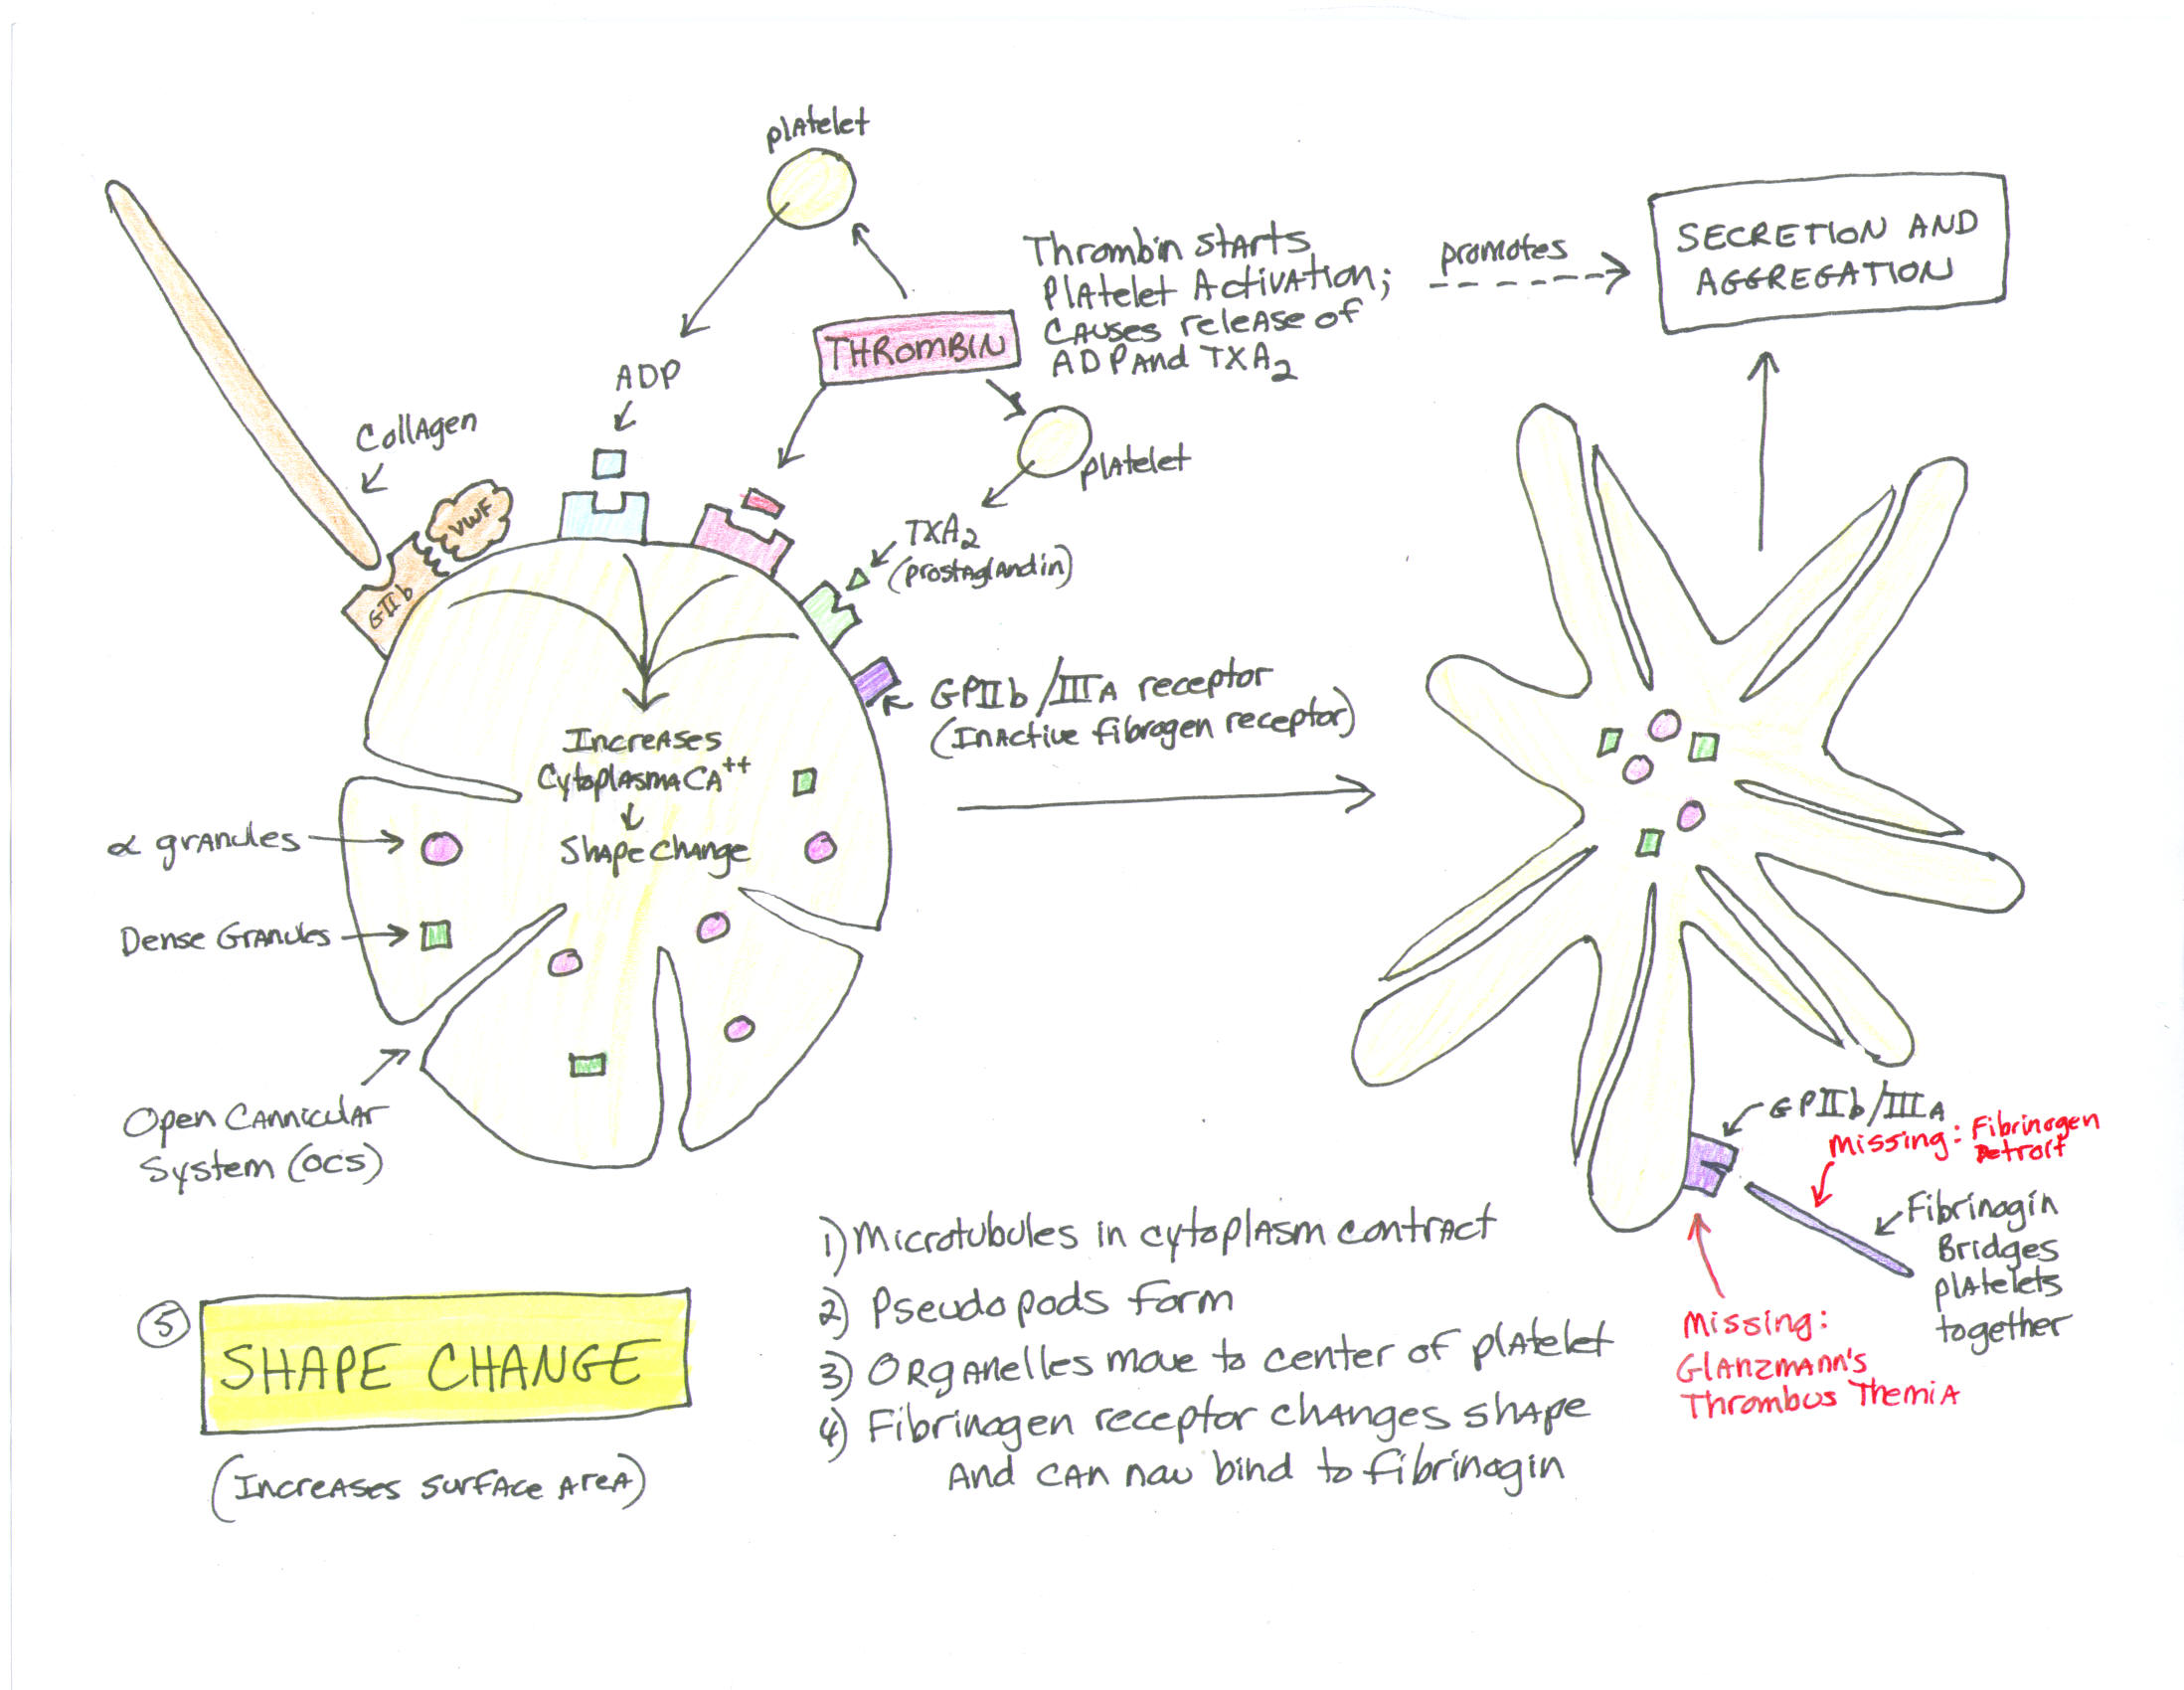 platelet
Thrombin starts
Platelet Activation;
causes release of
ADP and TXA2
promotes
SECRETION AND
AGGREGATION
THROMBIN
ADP
platelet
Collagen
VWF
GIIb
TXA2
(prostaglandin)
GPIIb/IIIA receptor
(Inactive fibrogen receptor)
Increases
CytoplasmaCA++
Shape change
α granules
Dense Granules
Open Cannicular
System (OCS)
GPIIb/IIIA
Missing: Fibrinogen
Detroit
Fibrinogin
Bridges
platelets
together
Missing:
Glanzmann's
Thrombus Themia
5
SHAPE CHANGE
(Increases surface area)
1) Microtubules in cytoplasm contract
2) Pseudopods form
3) Organelles move to center of platelet
4) Fibrinogen receptor changes shape
and can now bind to fibrinogin